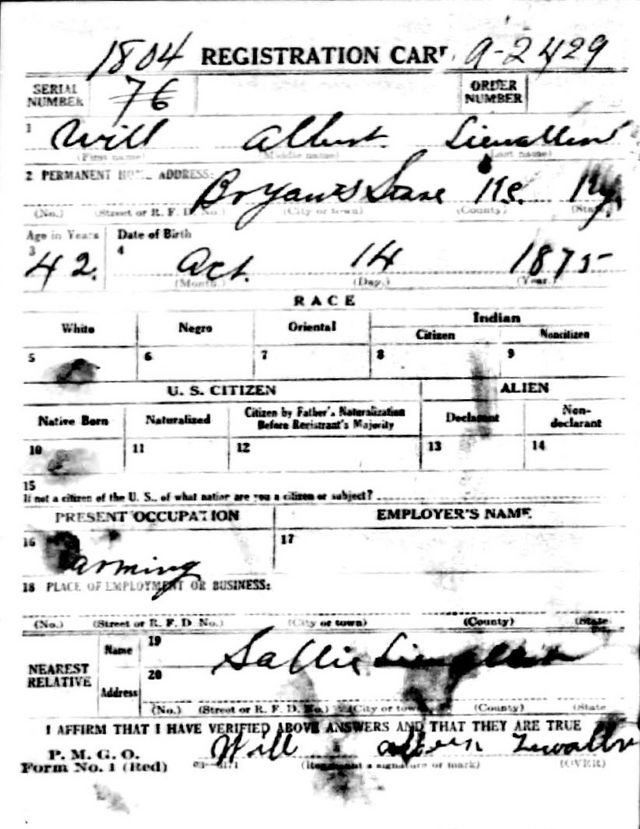 1804 REGISTRATION CARD A-2429
SERIAL NUMBER 76 ORDER NUMBER
1 Will Albert Liewallen
(First name) (Middle name) (Last name)
2 PERMANENT HOME ADDRESS:
Bryants Store Ky.
(No.) (Street or R. F. D. No.) (City or town) (County) (State)
Age in Years Date of Birth
3 42. 4 Oct. 14 1875
(Month.) (Day.) (Year.)
RACE
White Negro Oriental Indian
Citizen Noncitizen
5 6 7 8 9
U. S. CITIZEN ALIEN
Native Born Naturalized Citizen by Father's Naturalization Before Registrant's Majority Declarant Non-declarant
10 11 12 13 14
15
If not a citizen of the U. S., of what nation are you a citizen or subject?
PRESENT OCCUPATION EMPLOYER'S NAME
16 17
Farming
18 PLACE OF EMPLOYMENT OR BUSINESS:
(No.) (Street or R. F. D. No.) (City or town) (County) (State)
NEAREST RELATIVE Name 19 Sallie
Address 20
(No.) (Street or R. F. D. No.) (City or town) (County) (State
I AFFIRM THAT I HAVE VERIFIED ABOVE ANSWERS AND THAT THEY ARE TRUE
P. M. G. O.
Form No. 1 (Red) Will
(Registrant's signature or mark) (OVER)